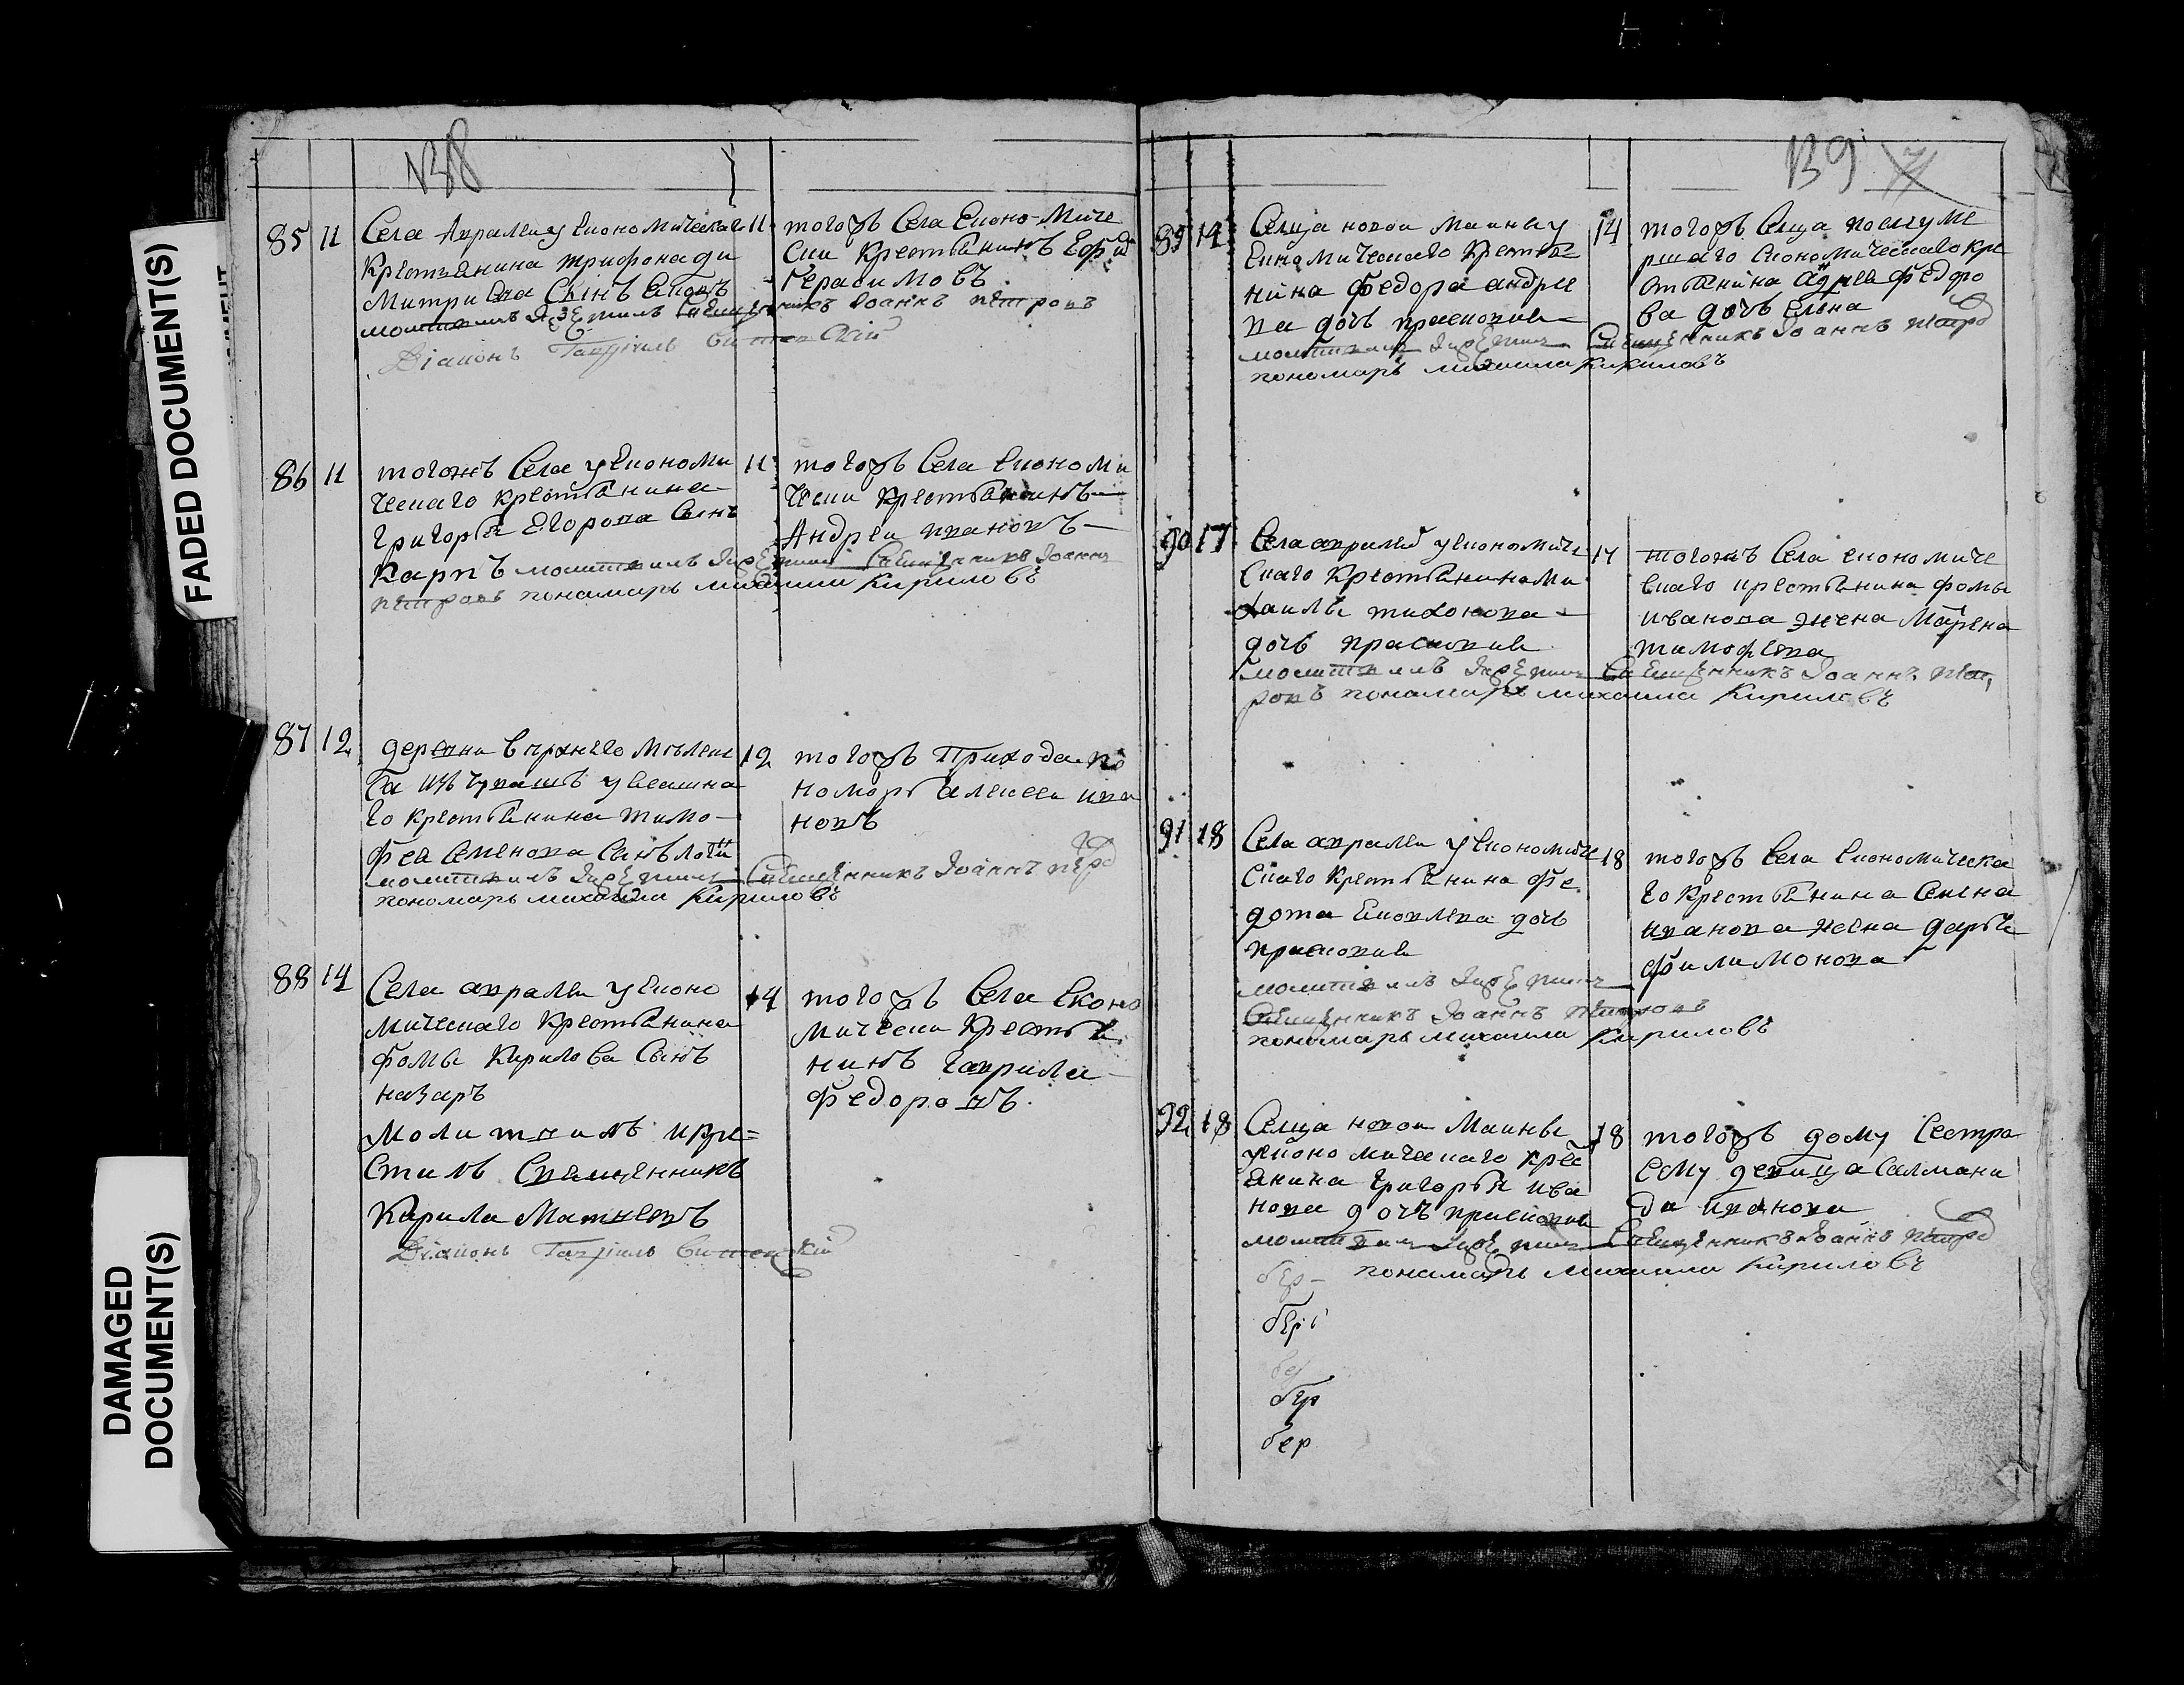 FADED DOCUMENT(S)
DAMAGED
DOCUMENT(S)
138
85 11 Села Авралеи у Економическаго
крестьянина трифона ди
митриева Сынъ
молитвилъ и крестилъ Священникъ Иоаннъ Петровъ
Діаконъ Гавріилъ
11 тогожъ Села Економиче
ски крестьянинъ
Герасимовъ
86 11 тогожъ Села у Економи
ческаго крестьянина
григорья Егорова Сынъ
Карпъ молитвилъ и крестилъ Священникъ Иоаннъ
Петровъ пономарь михаила Кириловъ
11 тогожъ Села Економи
чески крестьянинъ
Андреи ивановъ
87 12 деревни
у ясашна
го крестьянина тимо
фея Семенова Сынъ
молитвилъ и крестилъ Священникъ Иоаннъ
пономарь михаила Кириловъ
12 тогожъ Прихода по
номарь алексеи ива
новъ
88 14 Села авралеи у Еконо
мическаго крестьянина
фомы Кирилова Сынъ
назаръ
молитвилъ и кре
стилъ Священникъ
Кирила Матвеевъ
Діаконъ Гавріилъ
14 тогожъ Села Еконо
мически крестья
нинъ гаврила
Федоровъ
139
89 14 Селца новои Маины у
Економическаго крестья
нина Федора андрее
ва дочь прасковия
молитвилъ и крестилъ Священникъ Иоаннъ
пономарь михаила Кириловъ
14 тогожъ Селца
Економическаго кре
стьянина Федоро
ва дочь Елена
90 17 Села авралеи у Економиче
скаго крестьянина ми
хаилы тихонова
дочь прасковия
молитвилъ и крестилъ Священникъ Иоаннъ Пет
ровъ пономарь михаила Кириловъ
17 тогожъ Села економиче
скаго крестьянина фомы
иванова жена
тимофева
91 18 Села авралеи у Економиче
скаго крестьянина фе
дота яковлева дочь
прасковия
молитвилъ и крестилъ
Священникъ Иоаннъ Петровъ
пономарь михаила Кириловъ
18 тогожъ Села Економическа
го крестьянина
иванова жена дарья
филимонова
92 18 Селца новои Маины
у Економическаго крес
янина григорья ива
нова дочь прасковия
молитвилъ и крестилъ Священникъ Иоаннъ
пономарь михаила Кириловъ
18 тогожъ дому Сестра
ему девица Салмани
да иванова
бер
бер
бер
бер
бер